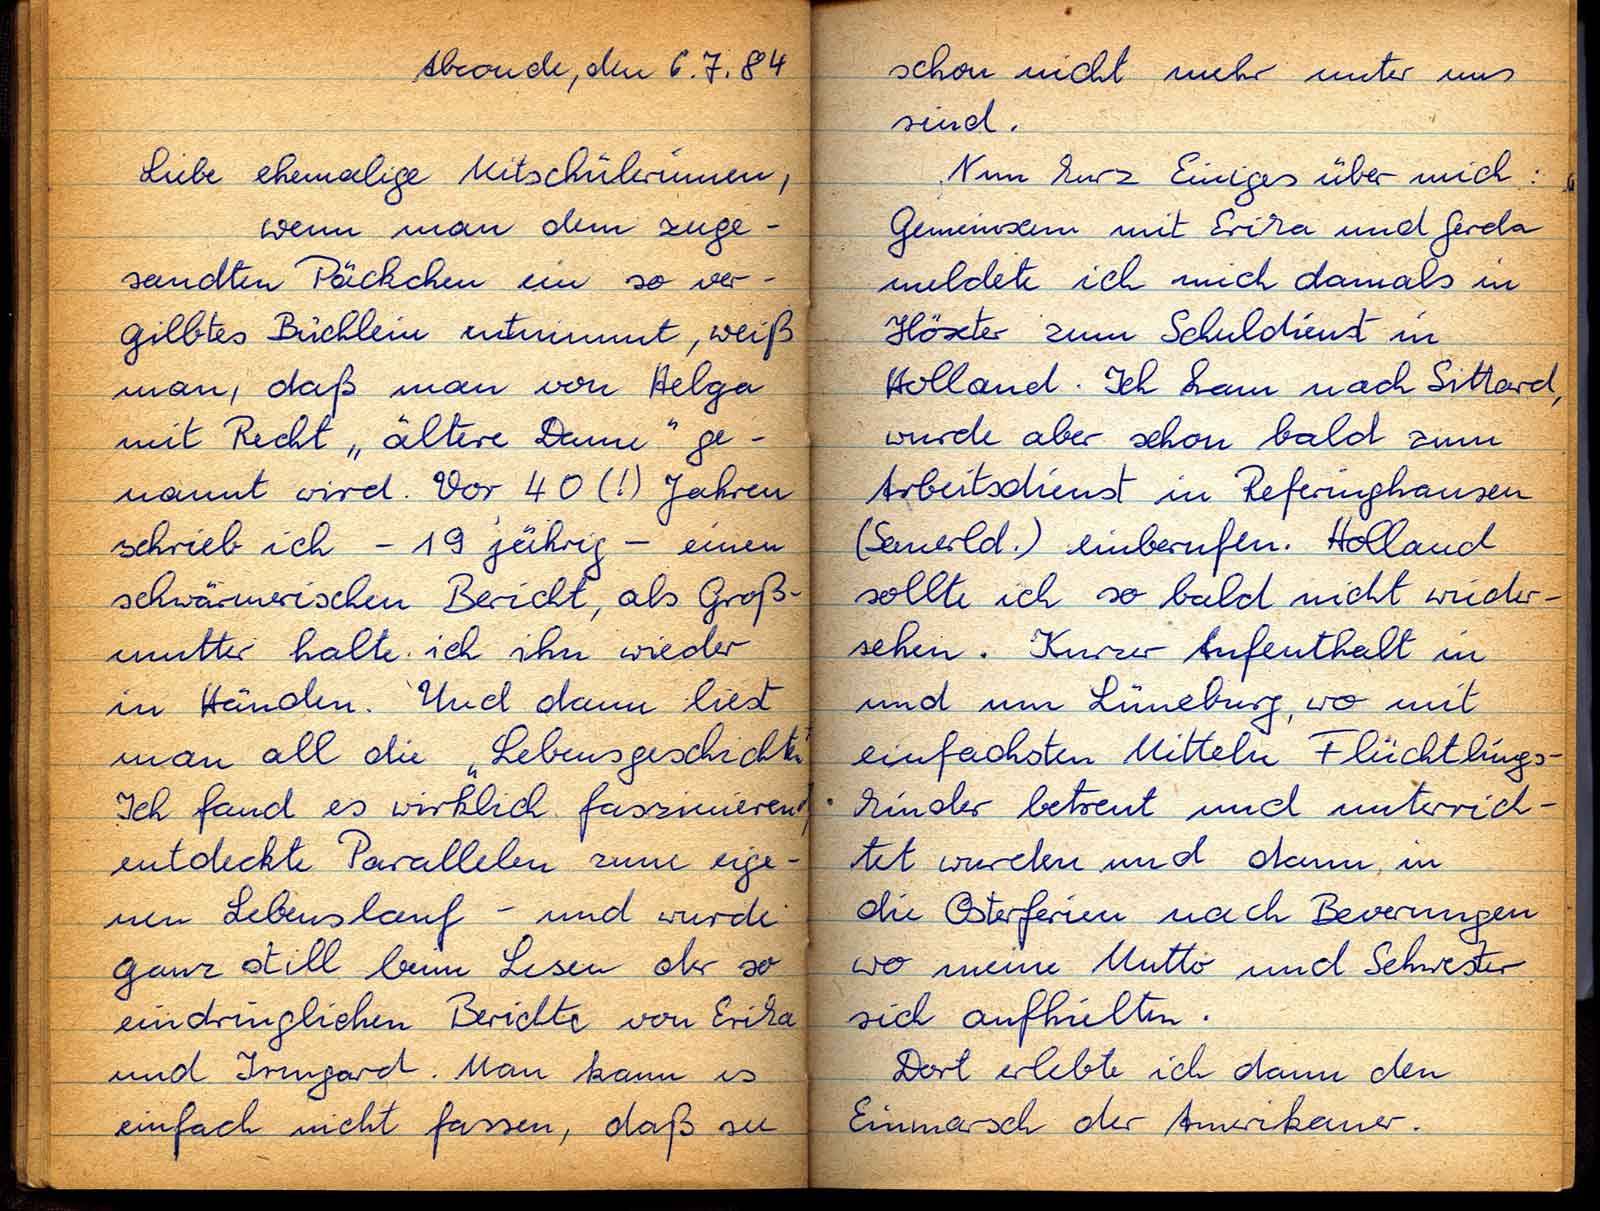 Abconde, den 6.7.84
Liebe ehemalige Mitschülerinnen,
wenn man dem zuge-
sandten Päckchen ein so ver-
gilbtes Büchlein entnimmt, weiß
man, daß man von Helga
mit Recht „ältere Dame" ge-
nannt wird. Vor 40 (!) Jahren
schrieb ich - 19 jährig - einen
schwärmerischen Bericht, als Groß-
mutter halte ich ihn wieder
in Händen. Und dann liest
man all die „Lebensgeschichten"
Ich fand es wirklich faszinierend,
entdeckte Parallelen zum eige-
nen Lebenslauf - und wurde
ganz still beim Lesen der so
eindringlichen Berichte von Erika
und Irmgard. Man kann es
einfach nicht fassen, daß sie
schon nicht mehr unter uns
sind.
Nun kurz Einiges über mich:
Gemeinsam mit Erika und Gerda
meldete ich mich damals in
Höxter zum Schuldienst in
Holland. Ich kam nach Sittard,
wurde aber schon bald zum
Arbeitsdienst in Referinghausen
(Sauerld.) einberufen. Holland
sollte ich so bald nicht wieder-
sehen. Kurzer Aufenthalt in
und um Lüneburg, wo mit
einfachsten Mitteln Flüchtlings-
kinder betreut und unterrich-
tet wurden und dann in
die Osterferien nach Beverungen
wo meine Mutti und Schwester
sich aufhielten.
Dort erlebte ich dann den
Einmarsch der Amerikaner.